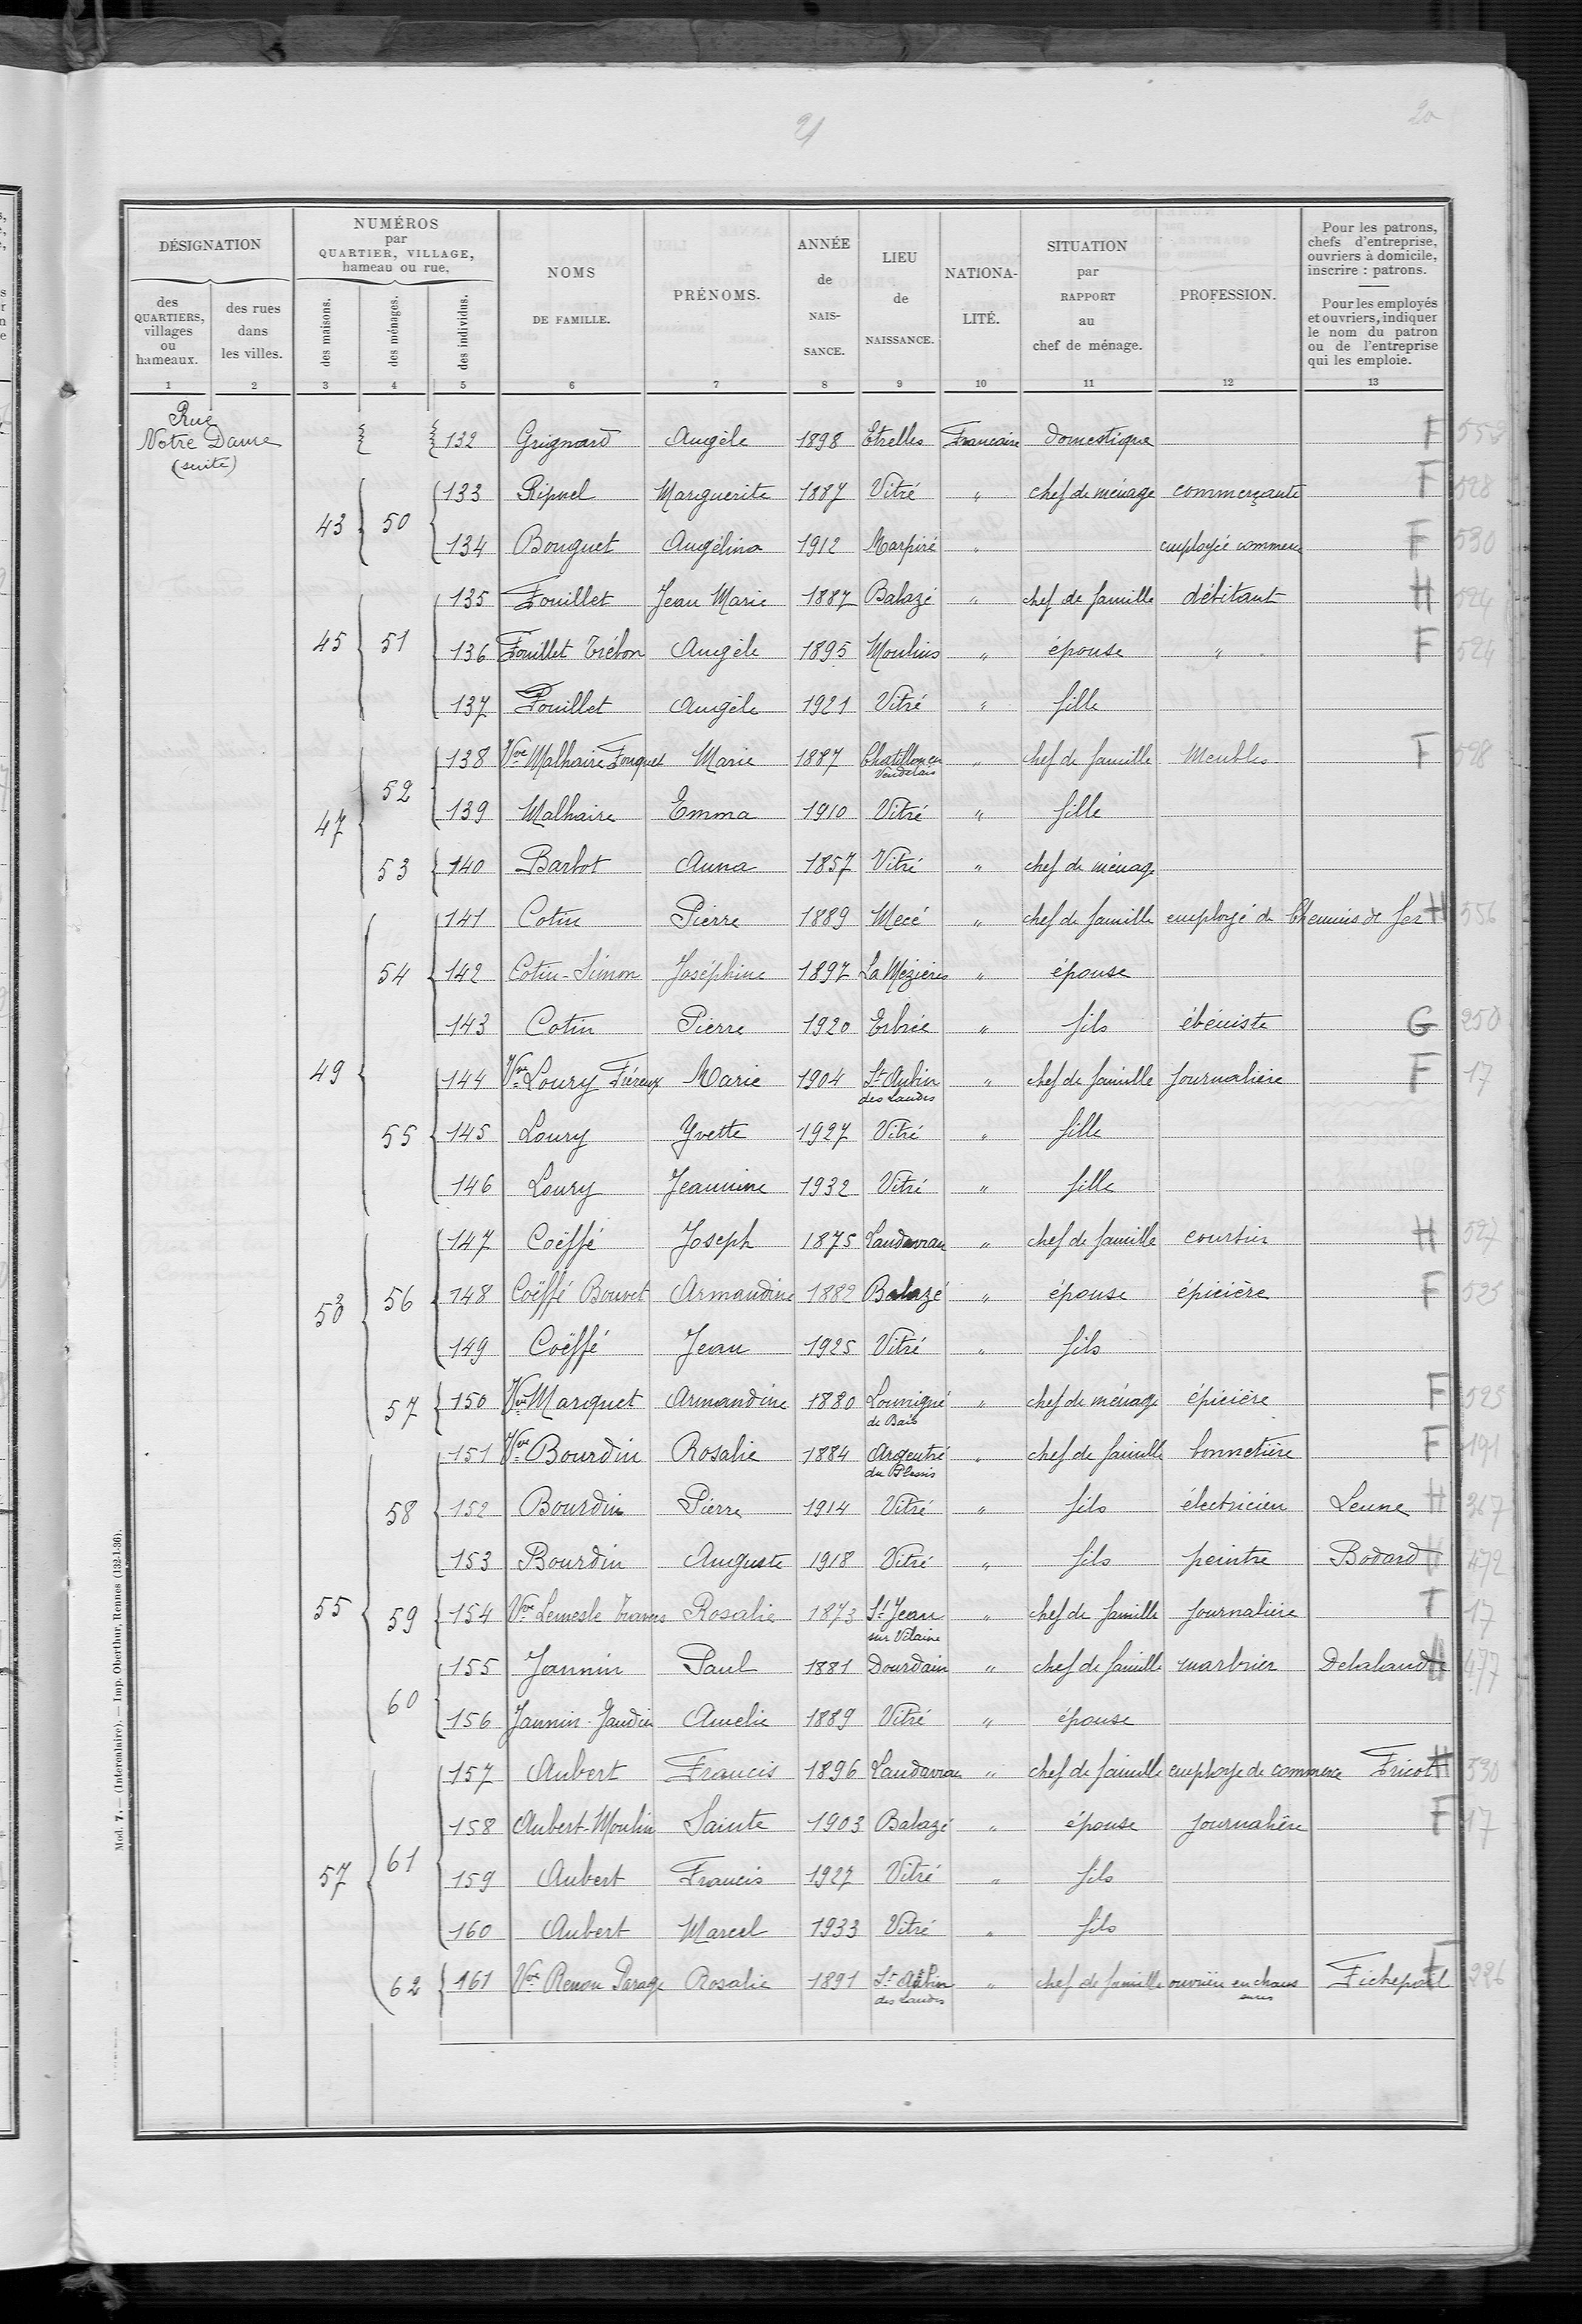 21
20
DÉSIGNATION
NUMÉROS
par
QUARTIER, VILLAGE,
hameau ou rue.
NOMS
DE FAMILLE.
PRÉNOMS.
ANNÉE
de
NAIS-
SANCE.
LIEU
de
NAISSANCE.
NATIONA-
LITÉ.
SITUATION
par
RAPPORT
au
chef de ménage.
PROFESSION.
Pour les patrons,
chefs d'entreprise,
ouvriers à domicile,
inscrire : patrons.
Pour les employés
et ouvriers, indiquer
le nom du patron
ou de l'entreprise
qui les emploie.
des
QUARTIERS,
villages
ou
hameaux.
des rues
dans
les villes.
des maisons.
des ménages.
des individus.
1 2 3 4 5 6 7 8 9 10 11 12 13
Rue
Notre Dame
(suite)
132 Grignard Angèle 1898 Etrelles Francaise domestique F 553
43 50 133 Ripnel Marguerite 1887 Vitré " chef de ménage commerçante F 528
134 Bouguet Angélina 1912 Marpiré " employée commerce F 530
45 51 135 Fouillet Jean Marie 1887 Balazé " chef de famille débitant H 524
136 Fouillet Trébon Angèle 1895 Moulins " épouse " F 524
137 Fouillet Angèle 1921 Vitré " fille
47 52 138 Vve Malhaire Fouquet Marie 1887 Chatillon en Vendelais " chef de famille Meubles F 528
139 Malhaire Emma 1910 Vitré " fille
53 140 Barbot Anna 1857 Vitré " chef de ménage
49 54 141 Cotin Pierre 1889 Mecé " chef de famille employé de Chemins de fer H 556
142 Cotin-Simon Joséphine 1897 La Mézières " épouse
143 Cotin Pierre 1920 Erbrée " fils ébéniste G 250
55 144 Vve Loury Fiéreux Marie 1904 St Aubin des Landes " chef de famille journalière F 17
145 Loury Yvette 1927 Vitré " fille
146 Loury Jeannine 1932 Vitré " fille
53 56 147 Coëffé Joseph 1875 Landavran " chef de famille courtier H 527
148 Coëffé Bouvet Armandine 1882 Balazé " épouse épicière F 525
149 Coëffé Jean 1925 Vitré " fils
57 150 Vve Marquet Armandine 1880 Louvigné de Bais " chef de ménage épicière F 525
55 58 151 Vve Bourdin Rosalie 1884 Argentré du Plessis " chef de famille bonnetière F 191
152 Bourdin Pierre 1914 Vitré " fils électricien Leune H 367
153 Bourdin Auguste 1918 Vitré " fils peintre Bodard H 472
59 154 Vve Lemesle Travers Rosalie 1873 St Jean sur Vilaine " chef de famille journalière F 17
60 155 Jannin Paul 1881 Dourdain " chef de famille marbrier Delalande H 477
156 Jannin-Jaudin Amelie 1889 Vitré " épouse
57 61 157 Aubert Francis 1896 Landavran " chef de famille employe de commerce Fricot H 530
158 Aubert-Moulin Sainte 1903 Balazé " épouse journalière F 17
159 Aubert Francis 1927 Vitré " fils
160 Aubert Marcel 1933 Vitré " fils
62 161 Vve Renou Parage Rosalie 1891 St Aubin des Landes " chef de famille ouvrière en chaussures Fichepoil F 226
Mod. 7. — (Intercalaire). — Imp. Oberthur, Rennes (132-1-36).